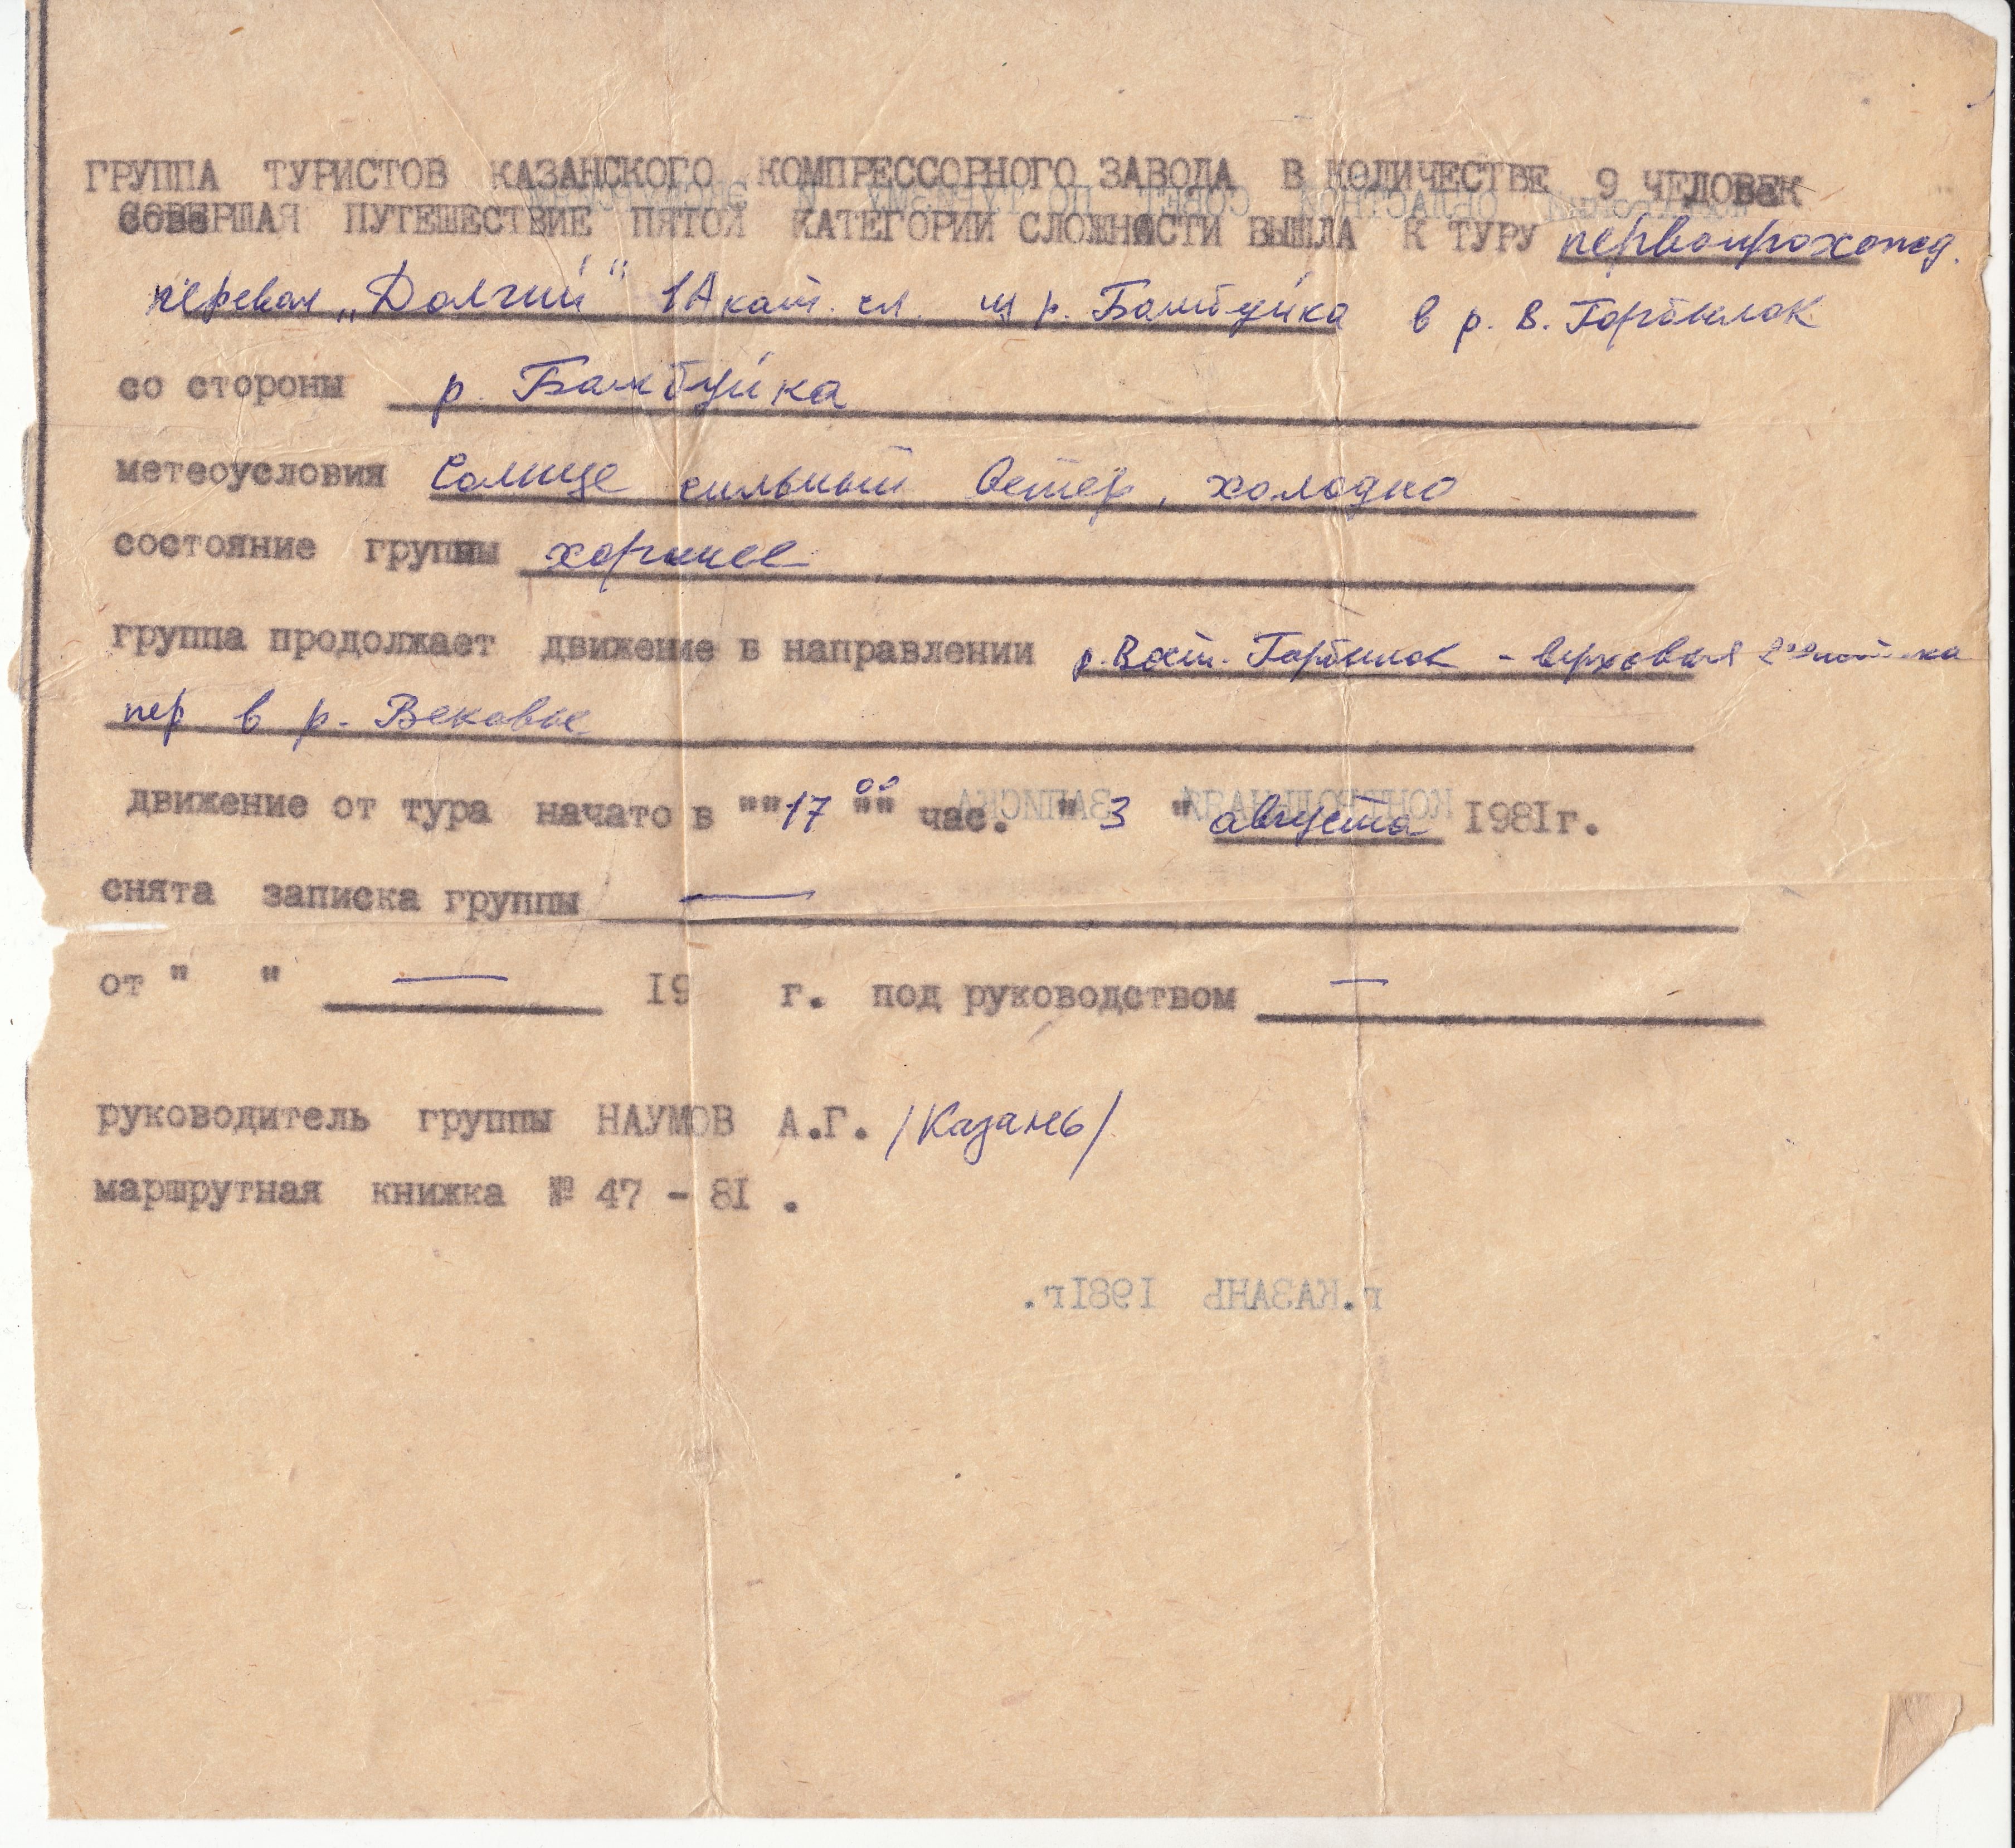 ГРУППА ТУРИСТОВ КАЗАНСКОГО КОМПРЕССОРНОГО ЗАВОДА В КОЛИЧЕСТВЕ 9 ЧЕЛОВЕК
СОВЕРШАЯ ПУТЕШЕСТВИЕ ПЯТОЙ КАТЕГОРИИ СЛОЖНОСТИ ВЫШЛА К ТУРУ первопрохожд.
перевал „Долгий" 1А кат. сл. из р. Бамбуйка в р. В. Горбылок
со стороны р. Бамбуйка
метеоусловия Солнце сильный ветер, холодно
состояние группы хорошее
группа продолжает движение в направлении р. Вост. Горбылок - верховья
пер в р. Вековые
движение от тура начато в ""17 00 "" час. " 3 " августа 1981г.
снята записка группы —
от " " — 19 г. под руководством —
руководитель группы НАУМОВ А.Г. /Казань/
маршрутная книжка № 47 - 81 .
КОНТРОЛЬНАЯ ЗАПИСКА
г.КАЗАНЬ 1981г.